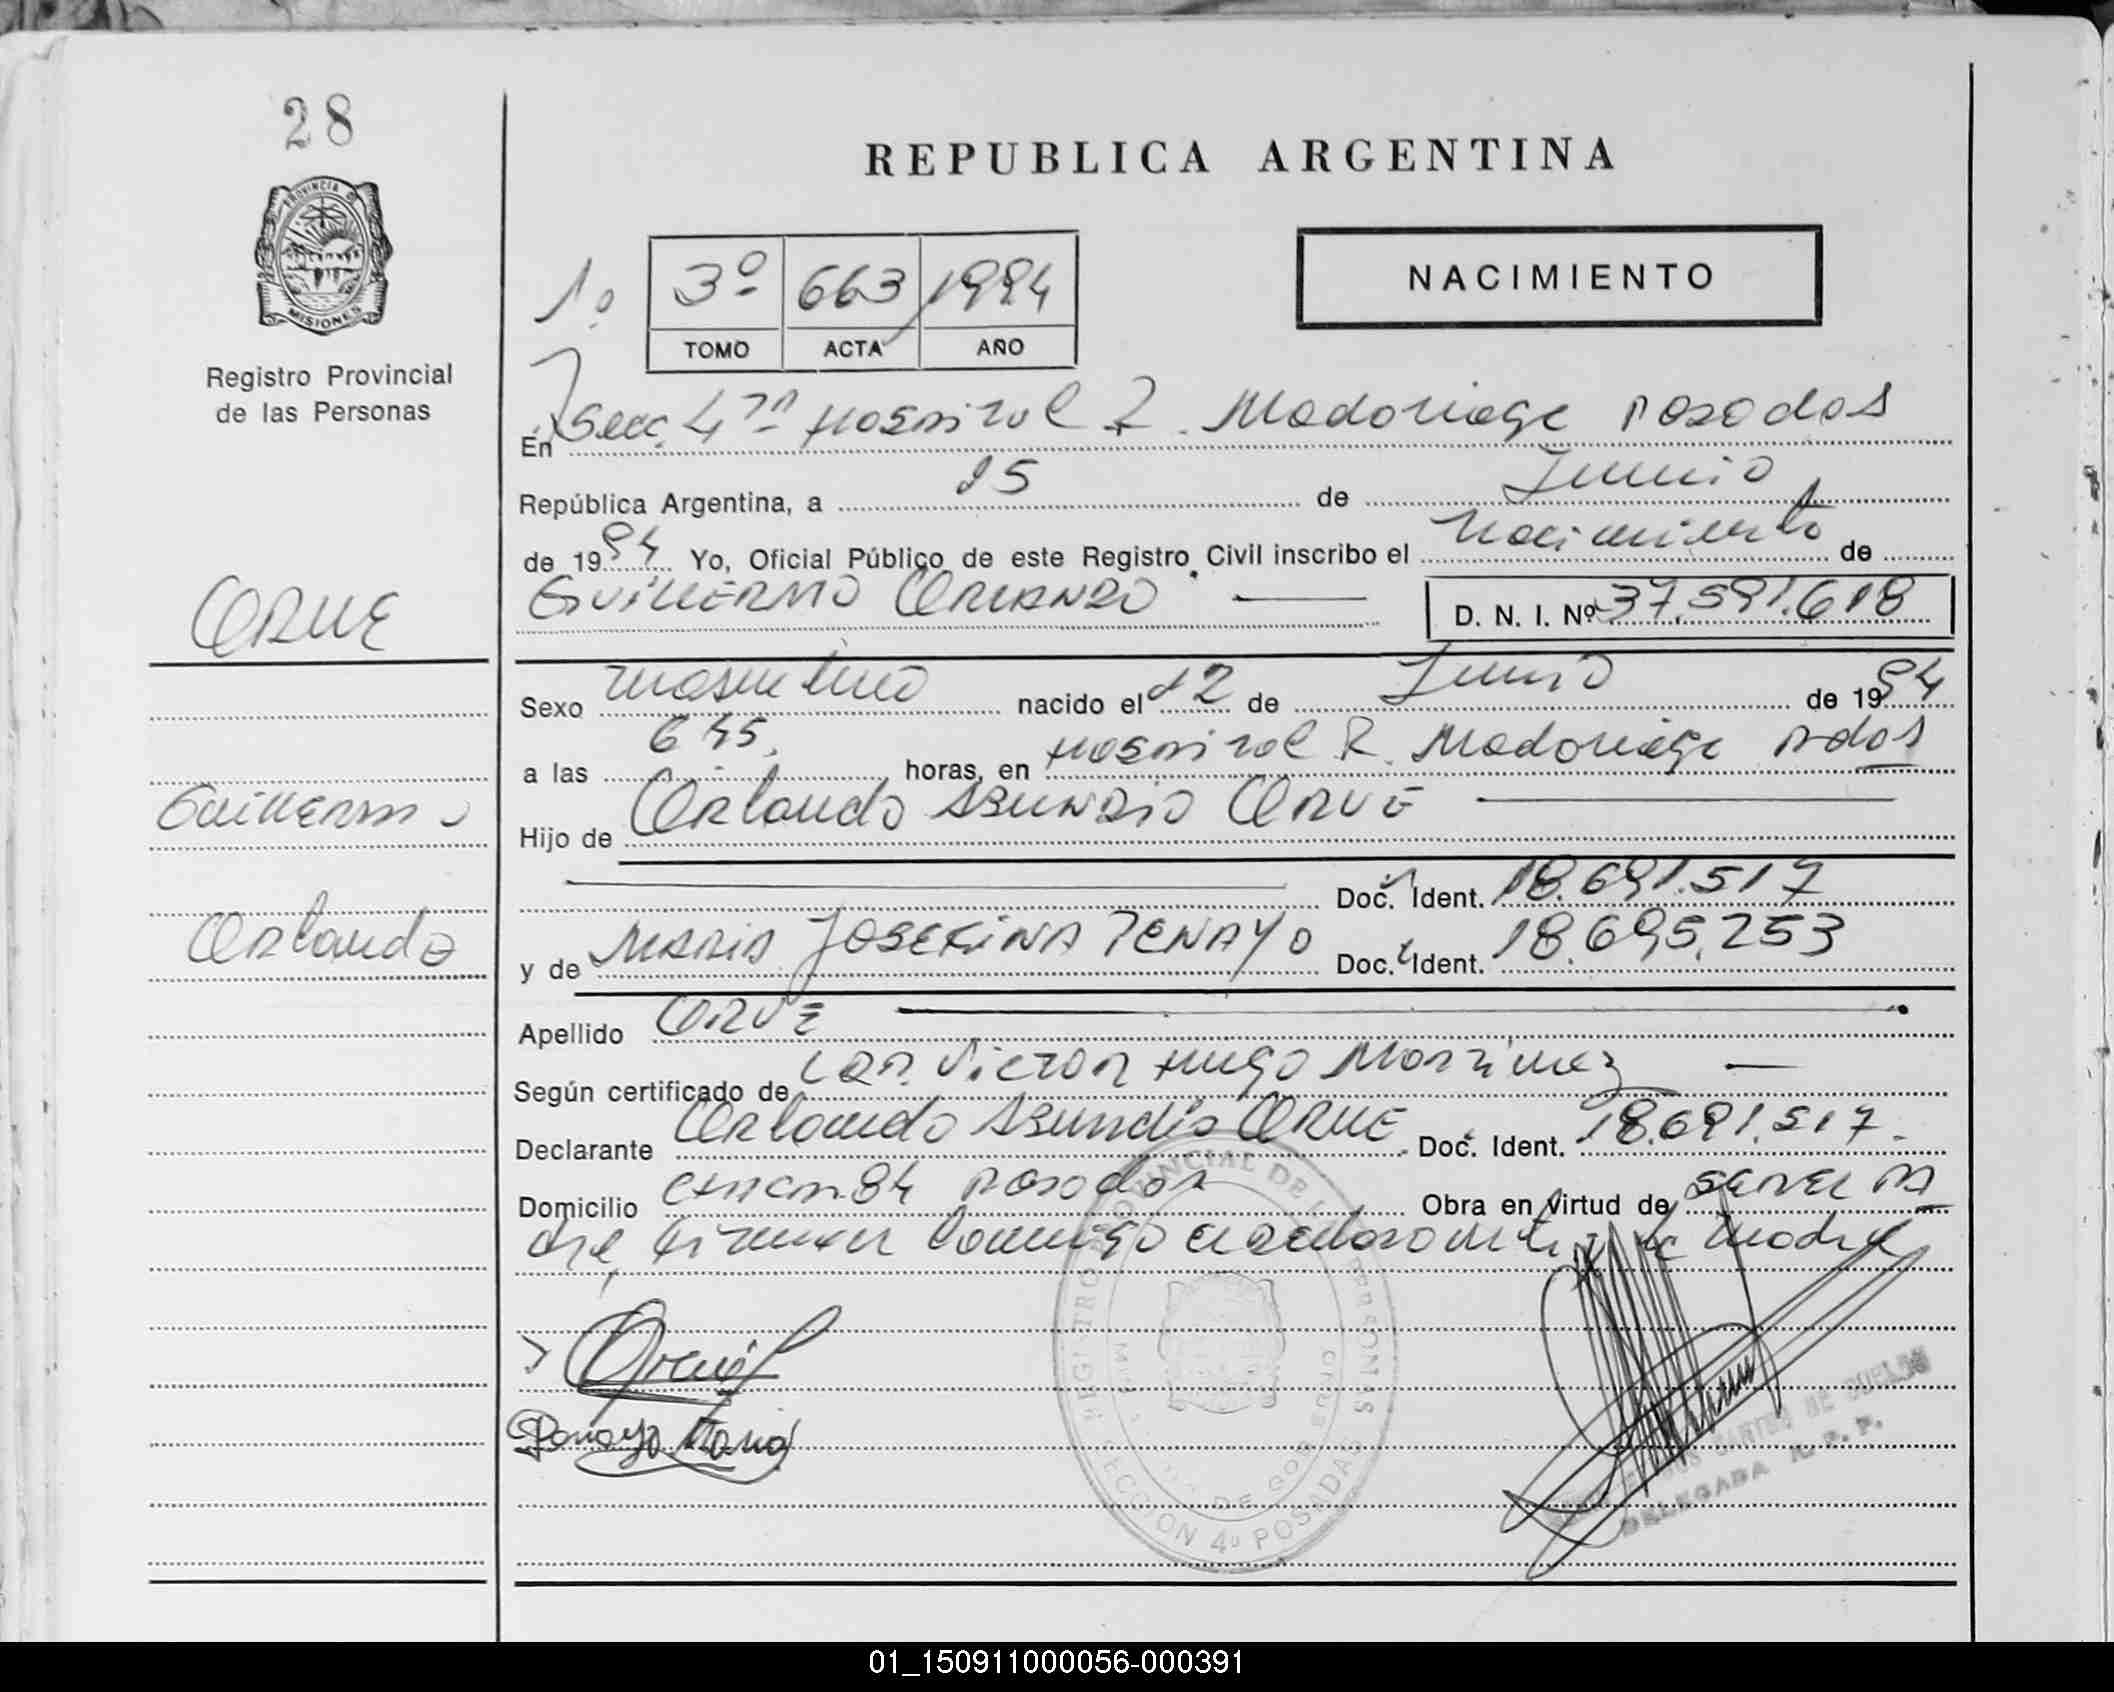 28
REPUBLICA ARGENTINA
PROVINCIA DE
MISIONES
NACIMIENTO
1º 3º 663 1994
TOMO ACTA AÑO
Registro Provincial
de las Personas
En Secc. 4ta Hospital R. Madariaga Posadas
República Argentina, a 15 de Junio
de 1994 Yo, Oficial Público de este Registro Civil inscribo el Nacimiento de
GUILLERMO ORLANDO
D. N. I. Nº 37.591.618
ORUE
Sexo masculino nacido el 12 de Junio de 1994
a las 6 45, horas, en Hospital R. Madariaga Pdas
Guillermo
Hijo de Orlando Asunsio ORUE
Doc. Ident. 18.691.517
Orlando
y de MARIA JOSEFINA PENAYO Doc. Ident. 18.695.253
Apellido ORUE
Según certificado de Victor Hugo Martinez
Declarante Orlando Asundio ORUE Doc. Ident. 18.691.517.
Domicilio 84 Posadas Obra en virtud de SER EL PA
dre, firman conmigo el declarante y la madre
Orue
Penayo Maria
REGISTRO PROVINCIAL DE LAS PERSONAS
SECCION 4º POSADAS
DE GOBIERNO
DE DUELON
DELEGADA R. P. P.
01_150911000056-000391